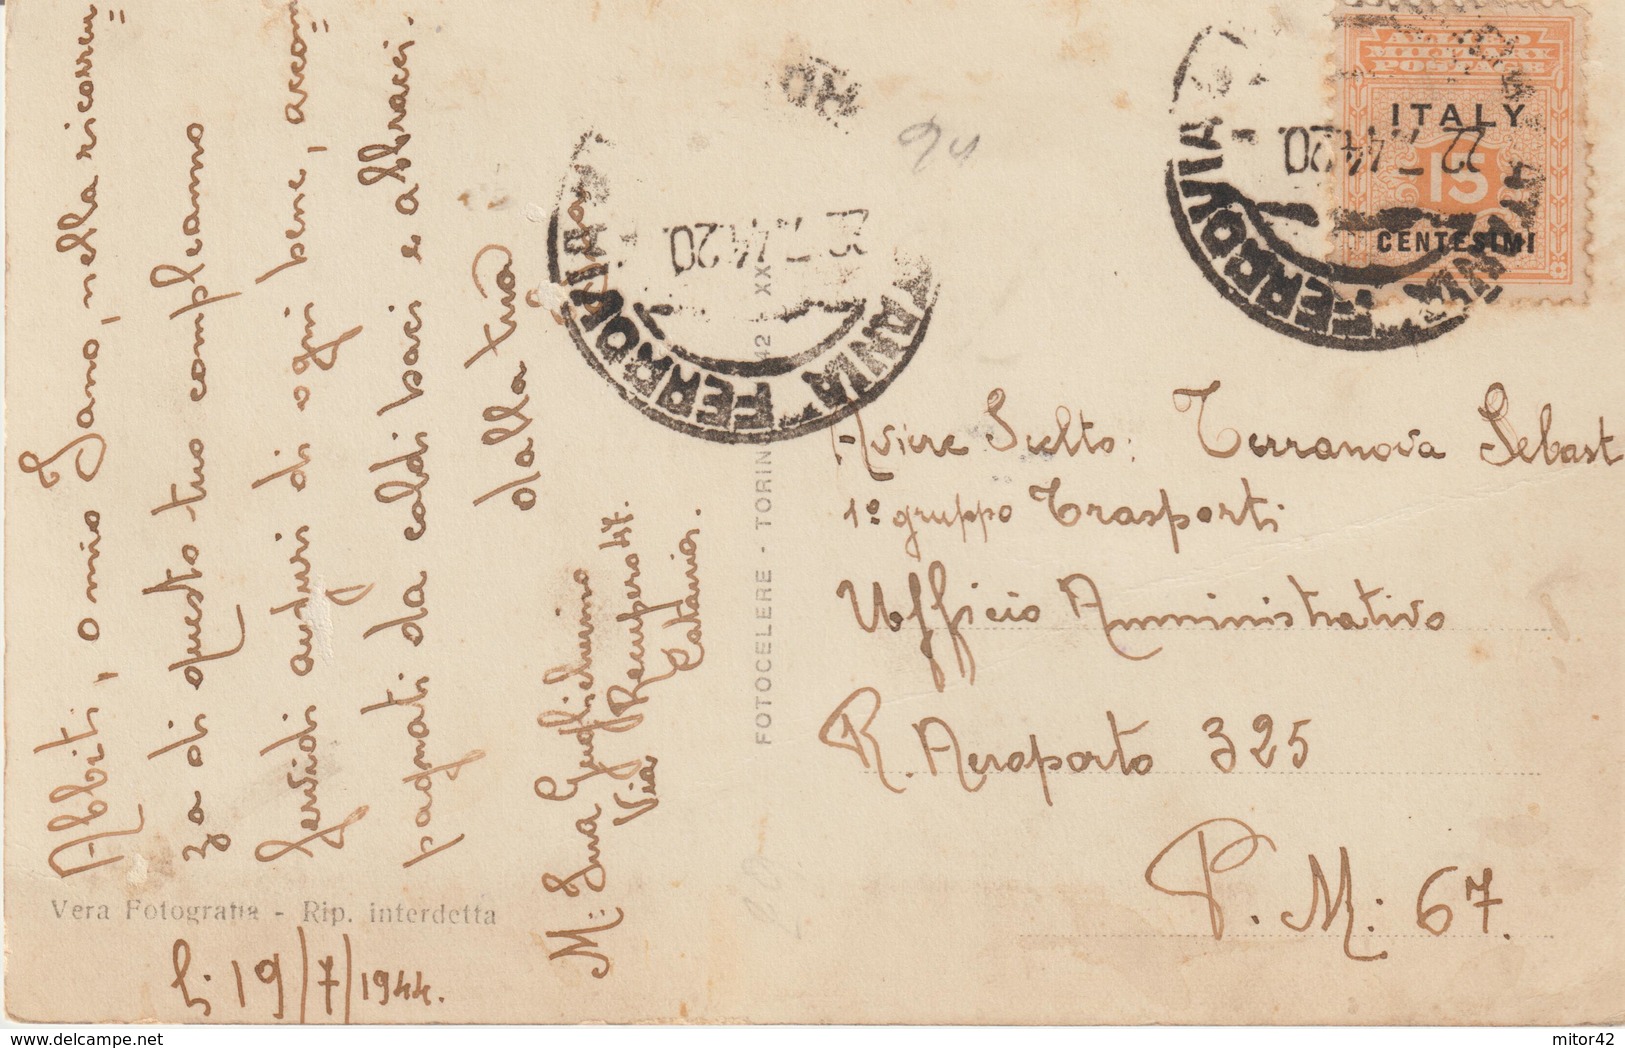 Abbiti, o mio Iano, nella ricorren=
za di questo tuo compleanno
fervidi auguri di ogni bene, accom=
pagnati da caldi baci e abbracci.
dalla tua
M: Ina Guglielmino
Via Recupero 47.
Catania.
Vera Fotografia - Rip. interdetta
19/7/1944.
FOTOCELERE - TORINO 42 XX
FERROVIA
22 7 44.20.
ALLIED
MILITARY
POSTAGE
ITALY
15
CENTESIMI
FERROVIA
22 7 44.20.
Aviere Scelto: Terranova Sebast
1° gruppo Trasporti
Ufficio Amministrativo
R. Aeroporto 325
P. M: 67.
mitor42